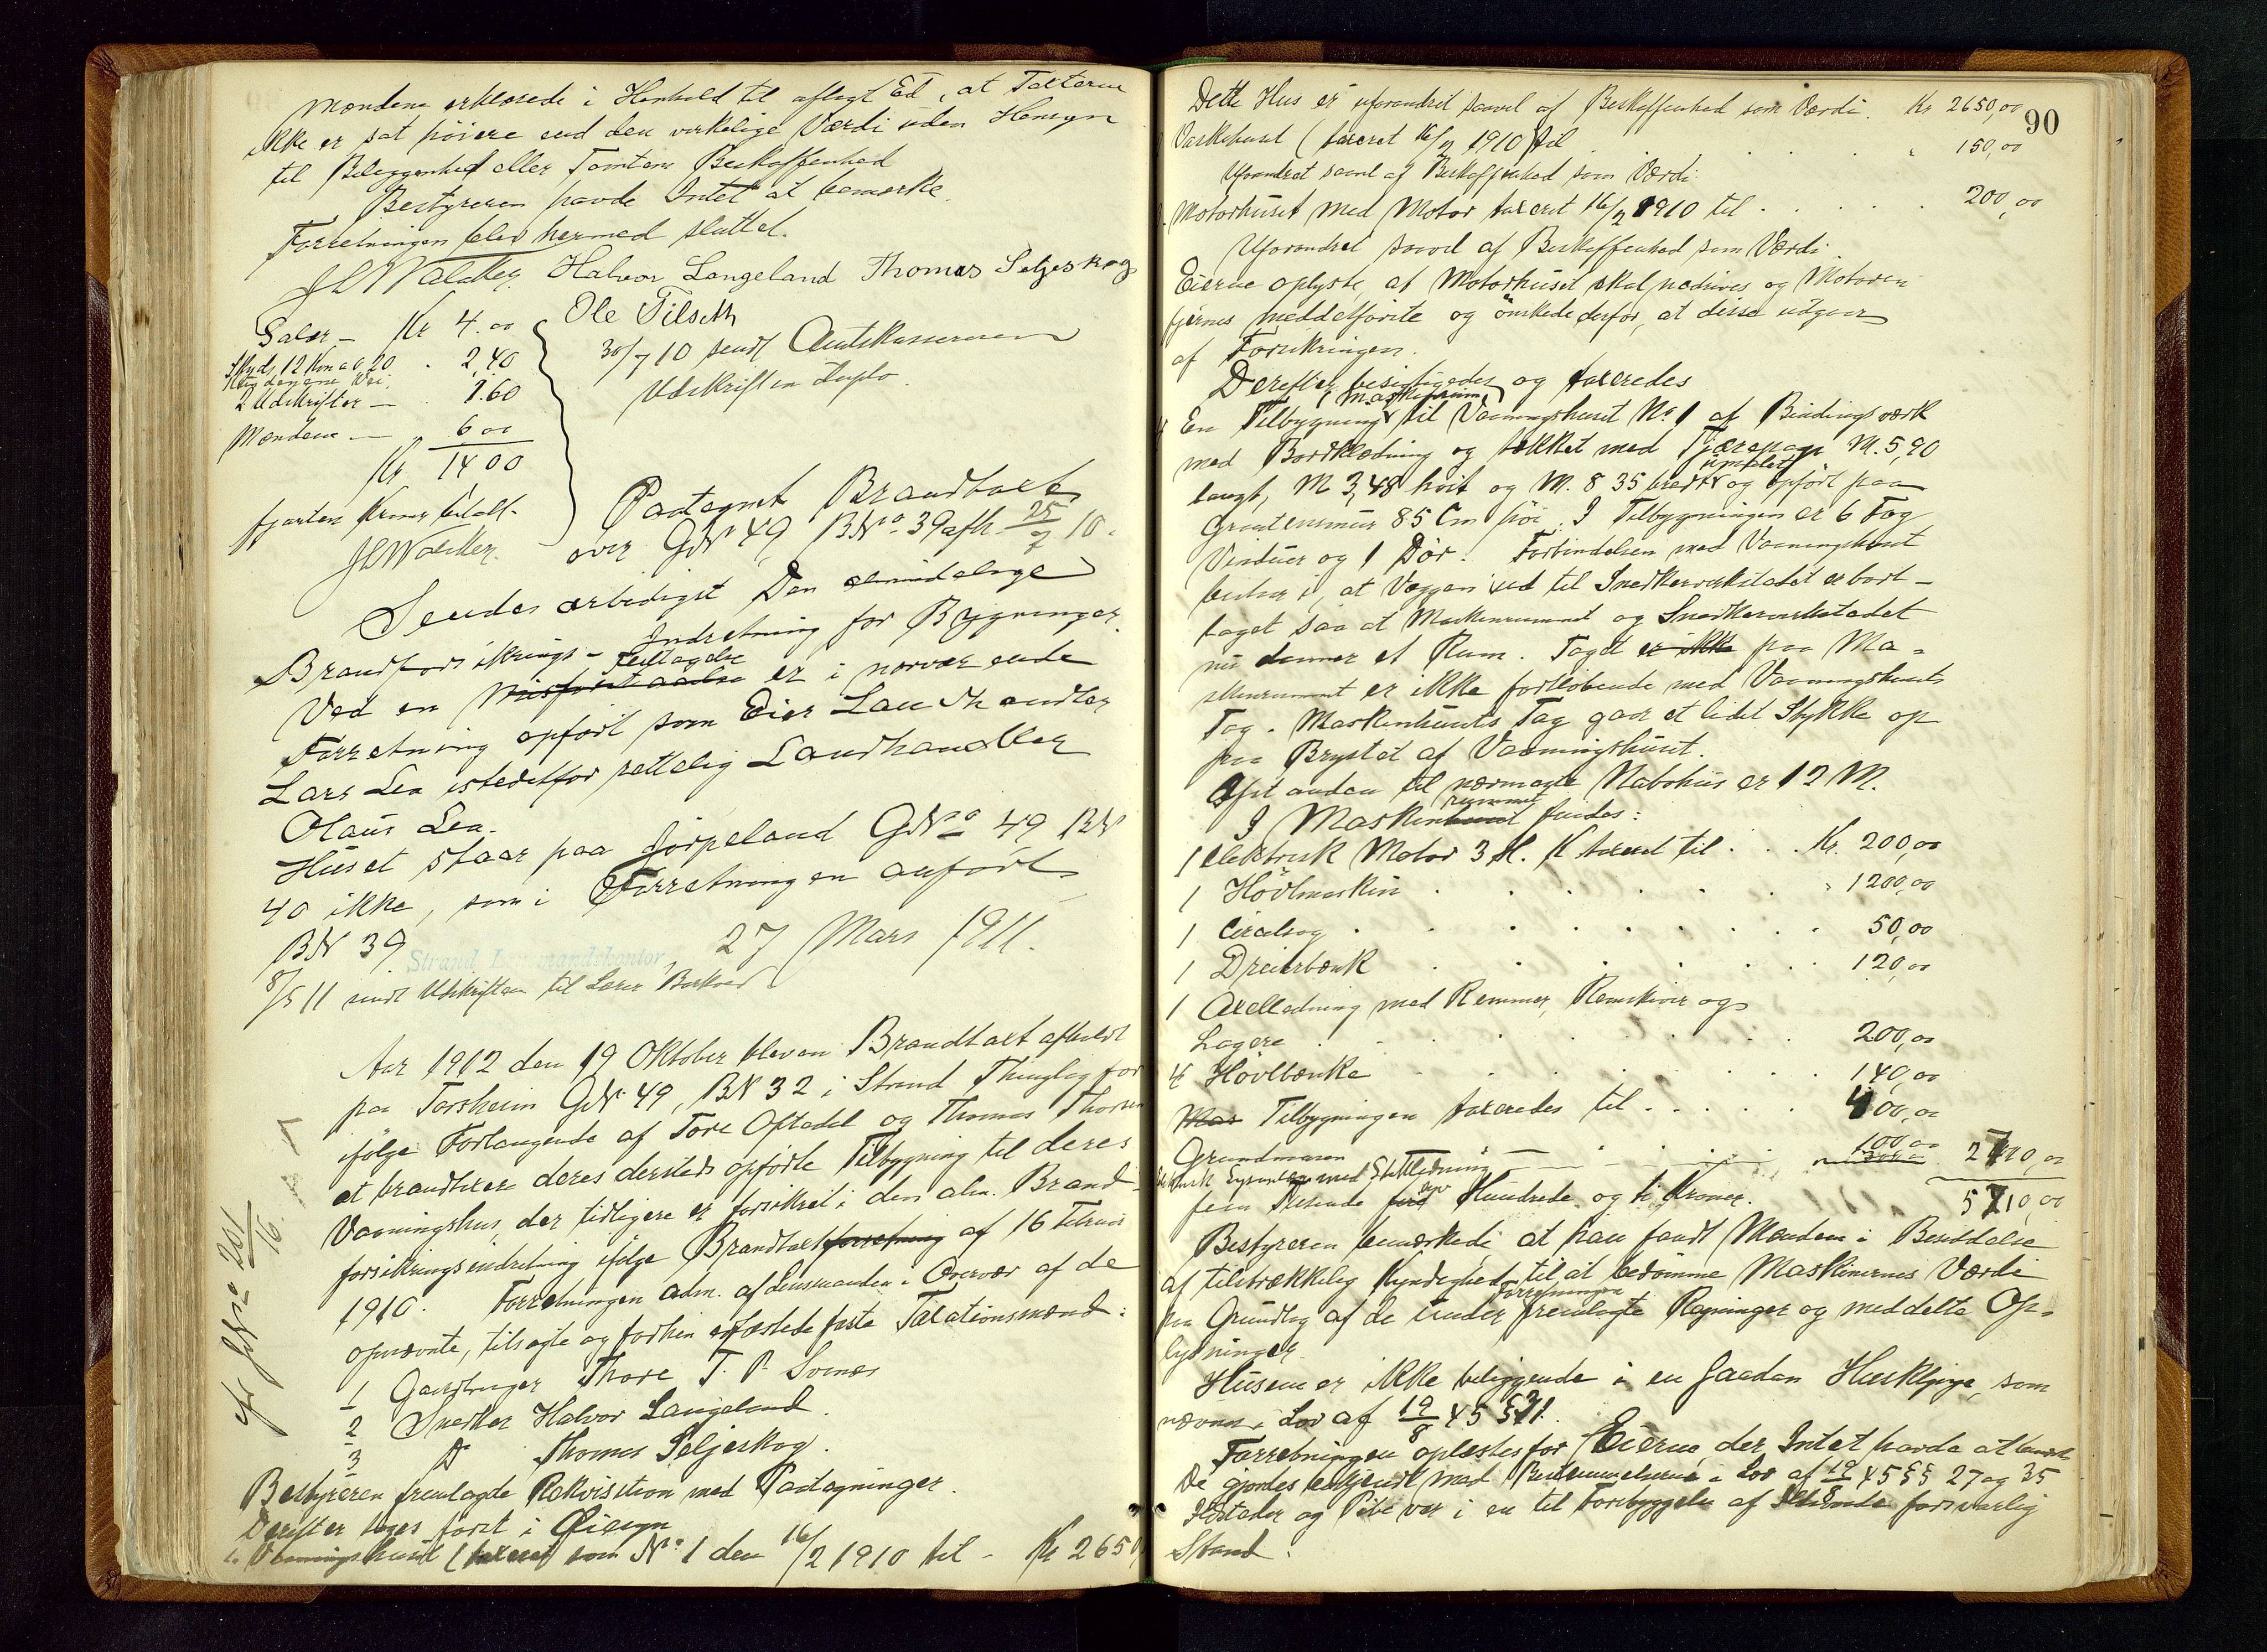 Mændene erklærede i Henhold til aflagt Ed, at Taxterne
ikke er sat høiere end den virkelige Værdi uden Hensyn
til Beliggenhed eller Tomtens Beskaffenhed
Bestyreren havde Intet at bemærke.
Forretningen blev hermed sluttet.
Halvor Langeland Thomas Seljeskog
Ole Tilseth
Salær — Kr 4.00
Skyds 12 Km a 0,20 . 2,40
2 Udskrifter — . 1.60
Mændene — „ 6 00
Kr 14 00
30/7 10 sendt Amtskassereren
Udskriften Duplo.
fjorten Kroner betalt.
Paategnet Brandtaxt
over GNr 49 BNo 39 afh 25/7 10.
Sendes ærbødigst Den almindelige
Brandforsikrings-Indretning for Bygninger
Ved en Feiltagelse er i nærværende
Forretning opført som Eier Landhandler
Lars Lea istedetfor rettelig Landhandler
Olaus Lea.
Huset staar paa Jørpeland GNo 49 BN
40 ikke, som i Forretningen anført
BN 39
Strand Lensmandskontor, 27 Mars 1911.
8/5 11 sendt Udskriften til Lærer
Aar 1912 den 19 Oktober blev en Brandtaxt afholdt
paa Torsheim GNr. 49, BN 32 i Strand Thinglag for
ifølge Forlangende af Tore Oftedal og Thomas Thorsen
at brandtaxere deres dersteds opførte Tilbygning til deres
Vaaningshus, der tidligere er forsikret i den alm. Brand-
forsikringsindretning ifølge Brandtaxtforretning af 16 Februar
1910. Forretningen adm. af Lensmanden i Overvær af de
opnævnte, tilsagte og forhen edfæstede faste Taxationsmænd:
1 Gaardbruger Thore T. P.
2 Snedker Halvor Langeland.
3 D Thomas Seljeskog.
Bestyreren fremlagde Rekvisition med Paategninger.
Derefter toges først i Øiesyn
1. Vaaningshuset (taxeret som No 1 den 16/2 1910 til - Kr 2650,
90
Dette Hus er uforandret saavel af Beskaffenhed som Værdi. Kr 2650,00
Vaskehuset (taxeret 16/2 1910 til . . . . 150,00
Uforandret saavel af Beskaffenhed som Værdi
Motorhuset med Motor taxeret 16/2 1910 til . . . . . 200,00
Uforandret saavel af Beskaffenhed som Værdi
Eierne oplyste, at Motorhuset skal nedrives og Motoren
fjernes meddelførte og ønskede derfor, at disse udgaar
af Forsikringen.
Derefter besigtigedes og taxeredes
(Maskinrum)
En Tilbygning til Vaaningshuset No 1 af Bindingsværk
med Bordklædning og tækket med Tjærepap M. 5,90
langt, M 3,48 høit og M. 8 35 bredt og opført paa
Graastensmur 85 Cm høi. I Tilbygningen er 6 Fag
Vinduer og 1 Dør. Forbindelsen med Vaaningshuset
bestaar i, at Væggen ud til Snedkerverkstedet er bort-
taget saa at Maskinrummet og Snedkerverkstedet
nu danner et Rum. Taget er ikke paa Ma-
skinrummet er ikke fortløbende med Vaaningshusets
Tag. Maskinhusets Tag gaar et lidet Stykke op
paa Brystet af Vaaningshuset.
Afstanden til nærmeste Nabohus er 12 M.
I Maskinrummet findes:
1 elektrisk Motor 3 H. K taxeret til . . Kr. 200,00
1 Høvlmaskin . . . . . 1200,00
1 Cirkelsag . . . . . . 50,00
1 Dreierbænk . . . . . 120,00
1 Axelledning med Remmer, Remskiver og
Lagere . . . . . 200,00
4 Høvlbænke . . . . . 140,00
Mas Tilbygningen taxeredes til . . . . . 400,00
Grundmuren 100,00 2410,00
5710,00
fem Tusende syv Hundrede og ti Kroner.
Bestyreren bemærkede at han fandt Mændene i Besiddelse
af tilstrækkelig Kyndighed til at bedømme Maskinernes Værdi
paa Grundlag af de under Forretningen fremlagte Regninger og meddelte Op-
lysninger.
Husene er ikke beliggende i en saadan Husklynge, som
nævnes i Lov af 19/8 45 § 31.
Forretningen oplæstes for Eierne, der Intet havde at bemærke
De gjordes bekjendt med Bestemmelserne i Lov af 19/8 45 §§ 27 og 35
Ildsteder og Pibe var i en til Forebyggelse af Ildsvaade forsvarlig
Stand.